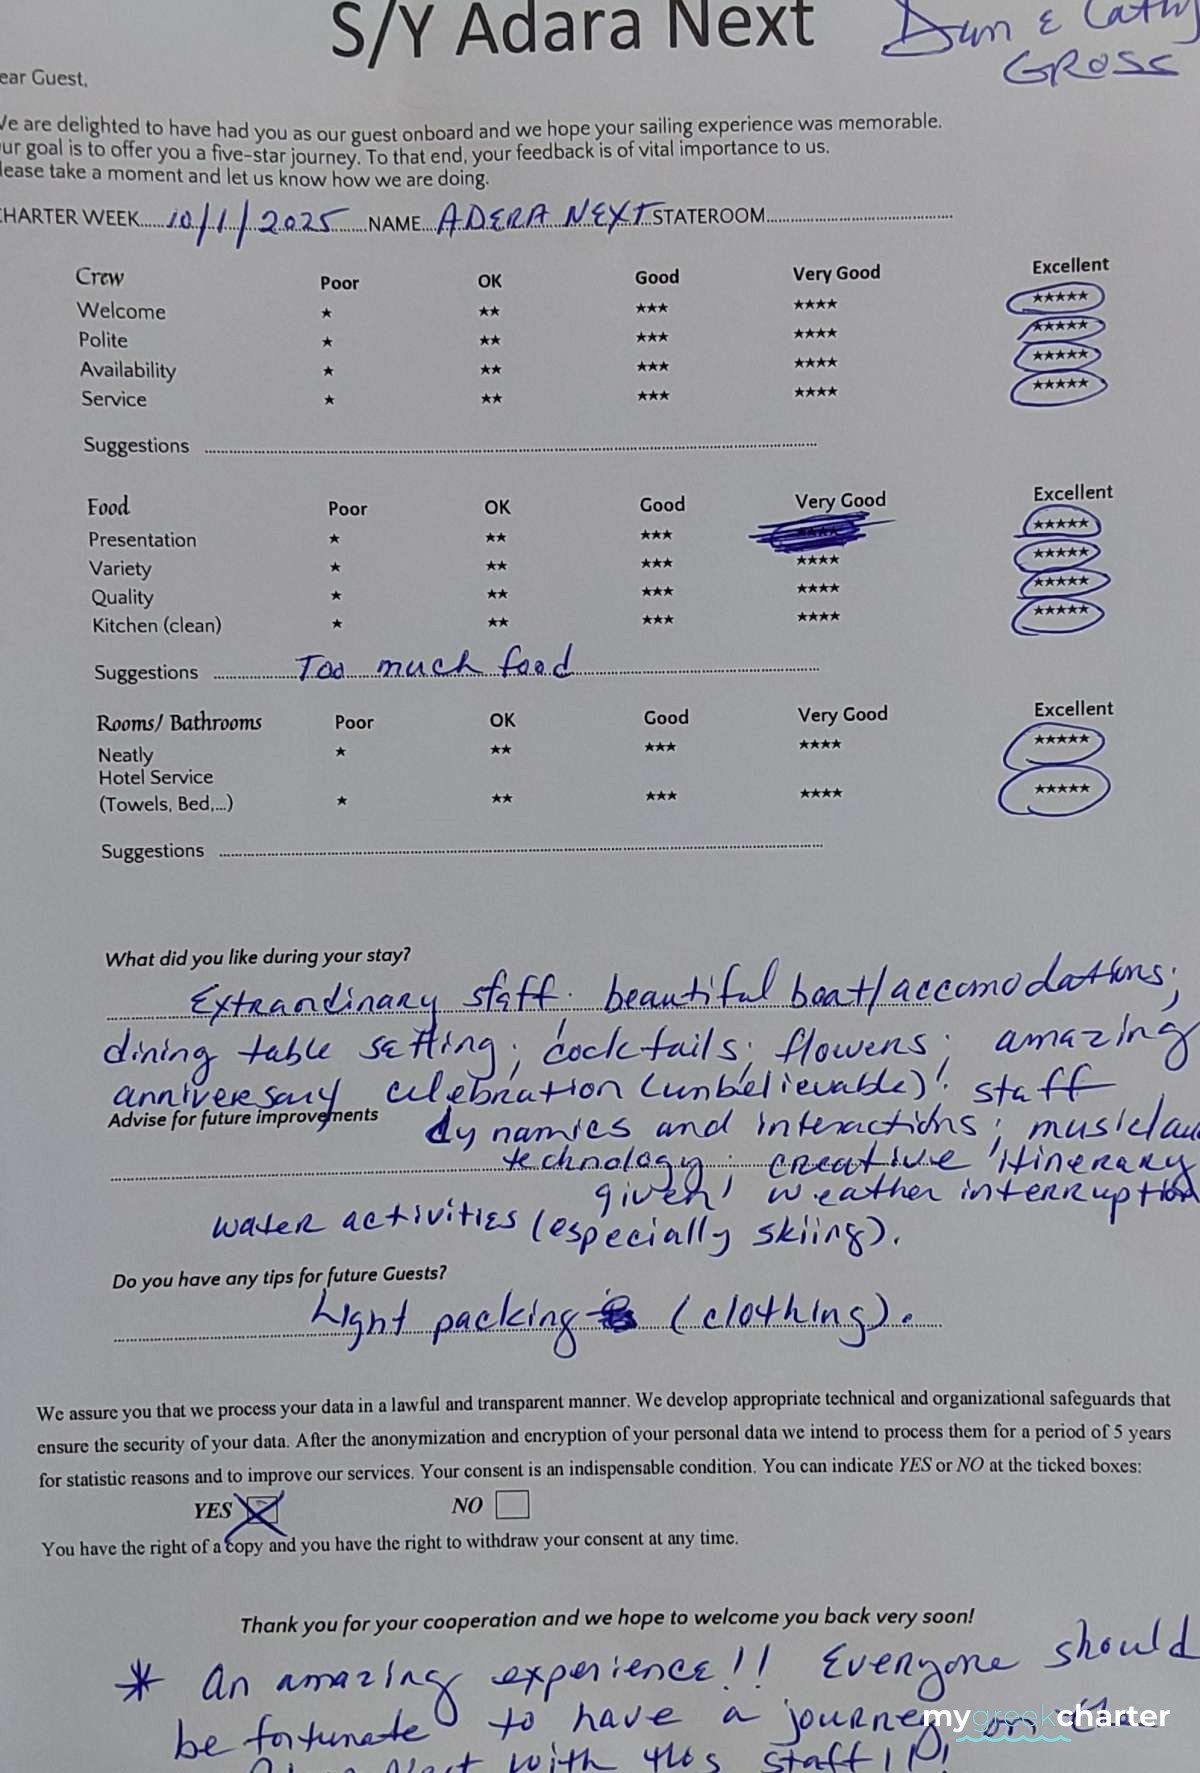 S/Y Adara Next
Dan & Cathy
GROSS
ear Guest,
We are delighted to have had you as our guest onboard and we hope your sailing experience was memorable.
ur goal is to offer you a five-star journey. To that end, your feedback is of vital importance to us.
lease take a moment and let us know how we are doing.
CHARTER WEEK 10/1/2025 NAME ADERA NEXT STATEROOM
Crew Poor OK Good Very Good Excellent
Welcome ★ ★★ ★★★ ★★★★ ★★★★★
Polite ★ ★★ ★★★ ★★★★ ★★★★★
Availability ★ ★★ ★★★ ★★★★ ★★★★★
Service ★ ★★ ★★★ ★★★★ ★★★★★
Suggestions
Food Poor OK Good Very Good Excellent
Presentation ★ ★★ ★★★ ★★★★ ★★★★★
Variety ★ ★★ ★★★ ★★★★ ★★★★★
Quality ★ ★★ ★★★ ★★★★ ★★★★★
Kitchen (clean) ★ ★★ ★★★ ★★★★ ★★★★★
Suggestions Too much food
Rooms/ Bathrooms Poor OK Good Very Good Excellent
Neatly ★ ★★ ★★★ ★★★★ ★★★★★
Hotel Service
(Towels, Bed,...) ★ ★★ ★★★ ★★★★ ★★★★★
Suggestions
What did you like during your stay?
Extraordinary staff. beautiful boat/accomodations;
dining table setting; cocktails; flowers; amazing
anniversary celebration (unbelievable)! staff
Advise for future improvements
dynamics and interactions;
technology; creative itinerary
given weather interruption
water activities (especially skiing).
Do you have any tips for future Guests?
Light packing (clothing).
We assure you that we process your data in a lawful and transparent manner. We develop appropriate technical and organizational safeguards that
ensure the security of your data. After the anonymization and encryption of your personal data we intend to process them for a period of 5 years
for statistic reasons and to improve our services. Your consent is an indispensable condition. You can indicate YES or NO at the ticked boxes:
YES NO
You have the right of a copy and you have the right to withdraw your consent at any time.
Thank you for your cooperation and we hope to welcome you back very soon!
* An amazing experience!! Everyone should
be fortunate to have a journey on the
Next with this staff!!
mygreekcharter